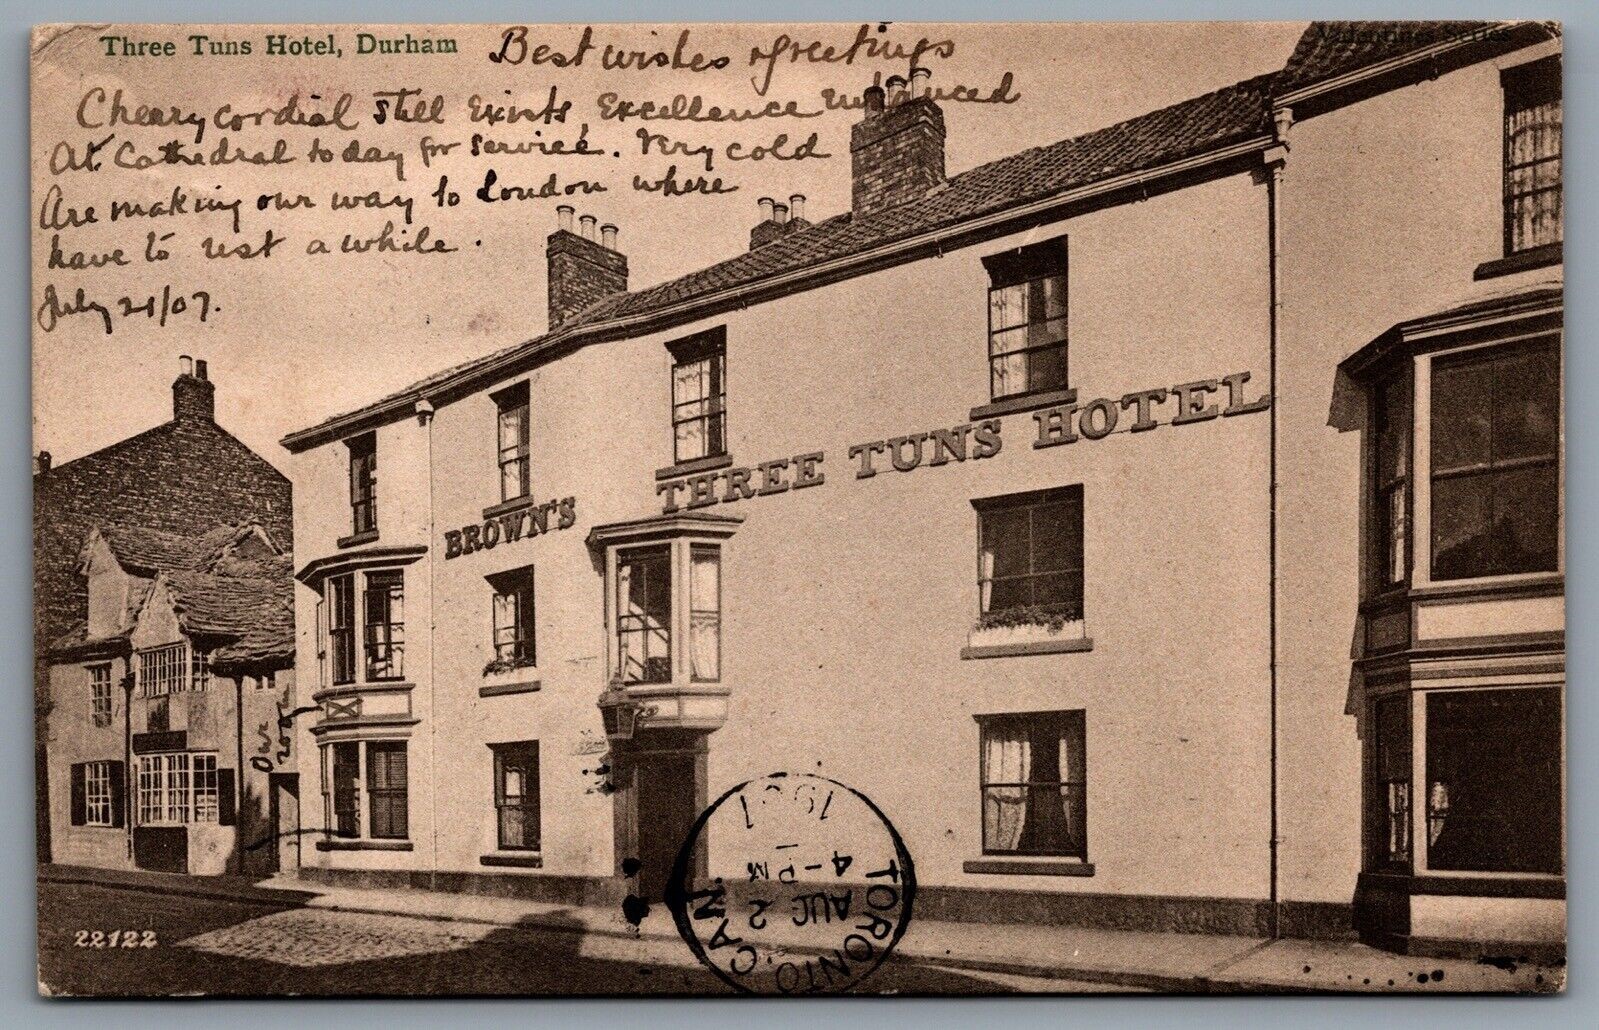 Three Tuns Hotel, Durham
Valentines Series
Best wishes & greetings
Cherry cordial still exists, Excellence enhanced
At Cathedral to day for service. Very cold
Are making our way to London where
have to rest a while.
July 21/07.
BROWN'S THREE TUNS HOTEL
Our room
22122
TORONTO, CAN.
4-PM
AUG 2
1907